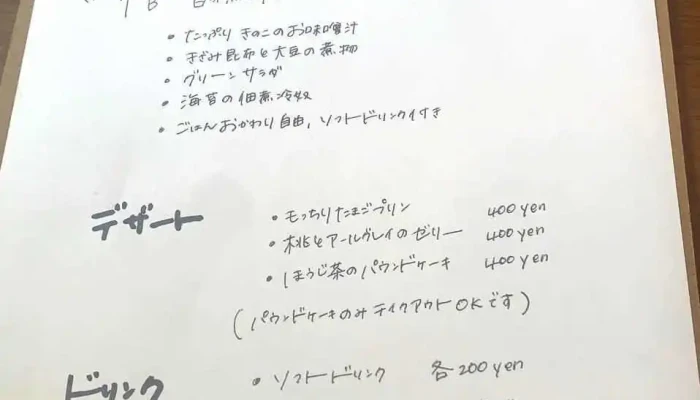 ・たっぷりきのこのお味噌汁
・きざみ昆布と大豆の煮物
・グリーンサラダ
・海苔の佃煮冷奴
・ごはんおかわり自由、ソフトドリンク付き
デザート
・もっちりたまごプリン 400yen
・桃とアールグレイのゼリー 400yen
・ほうじ茶のパウンドケーキ 400yen
(パウンドケーキのみテイクアウトOKです)
ドリンク
・ソフトドリンク 各200yen